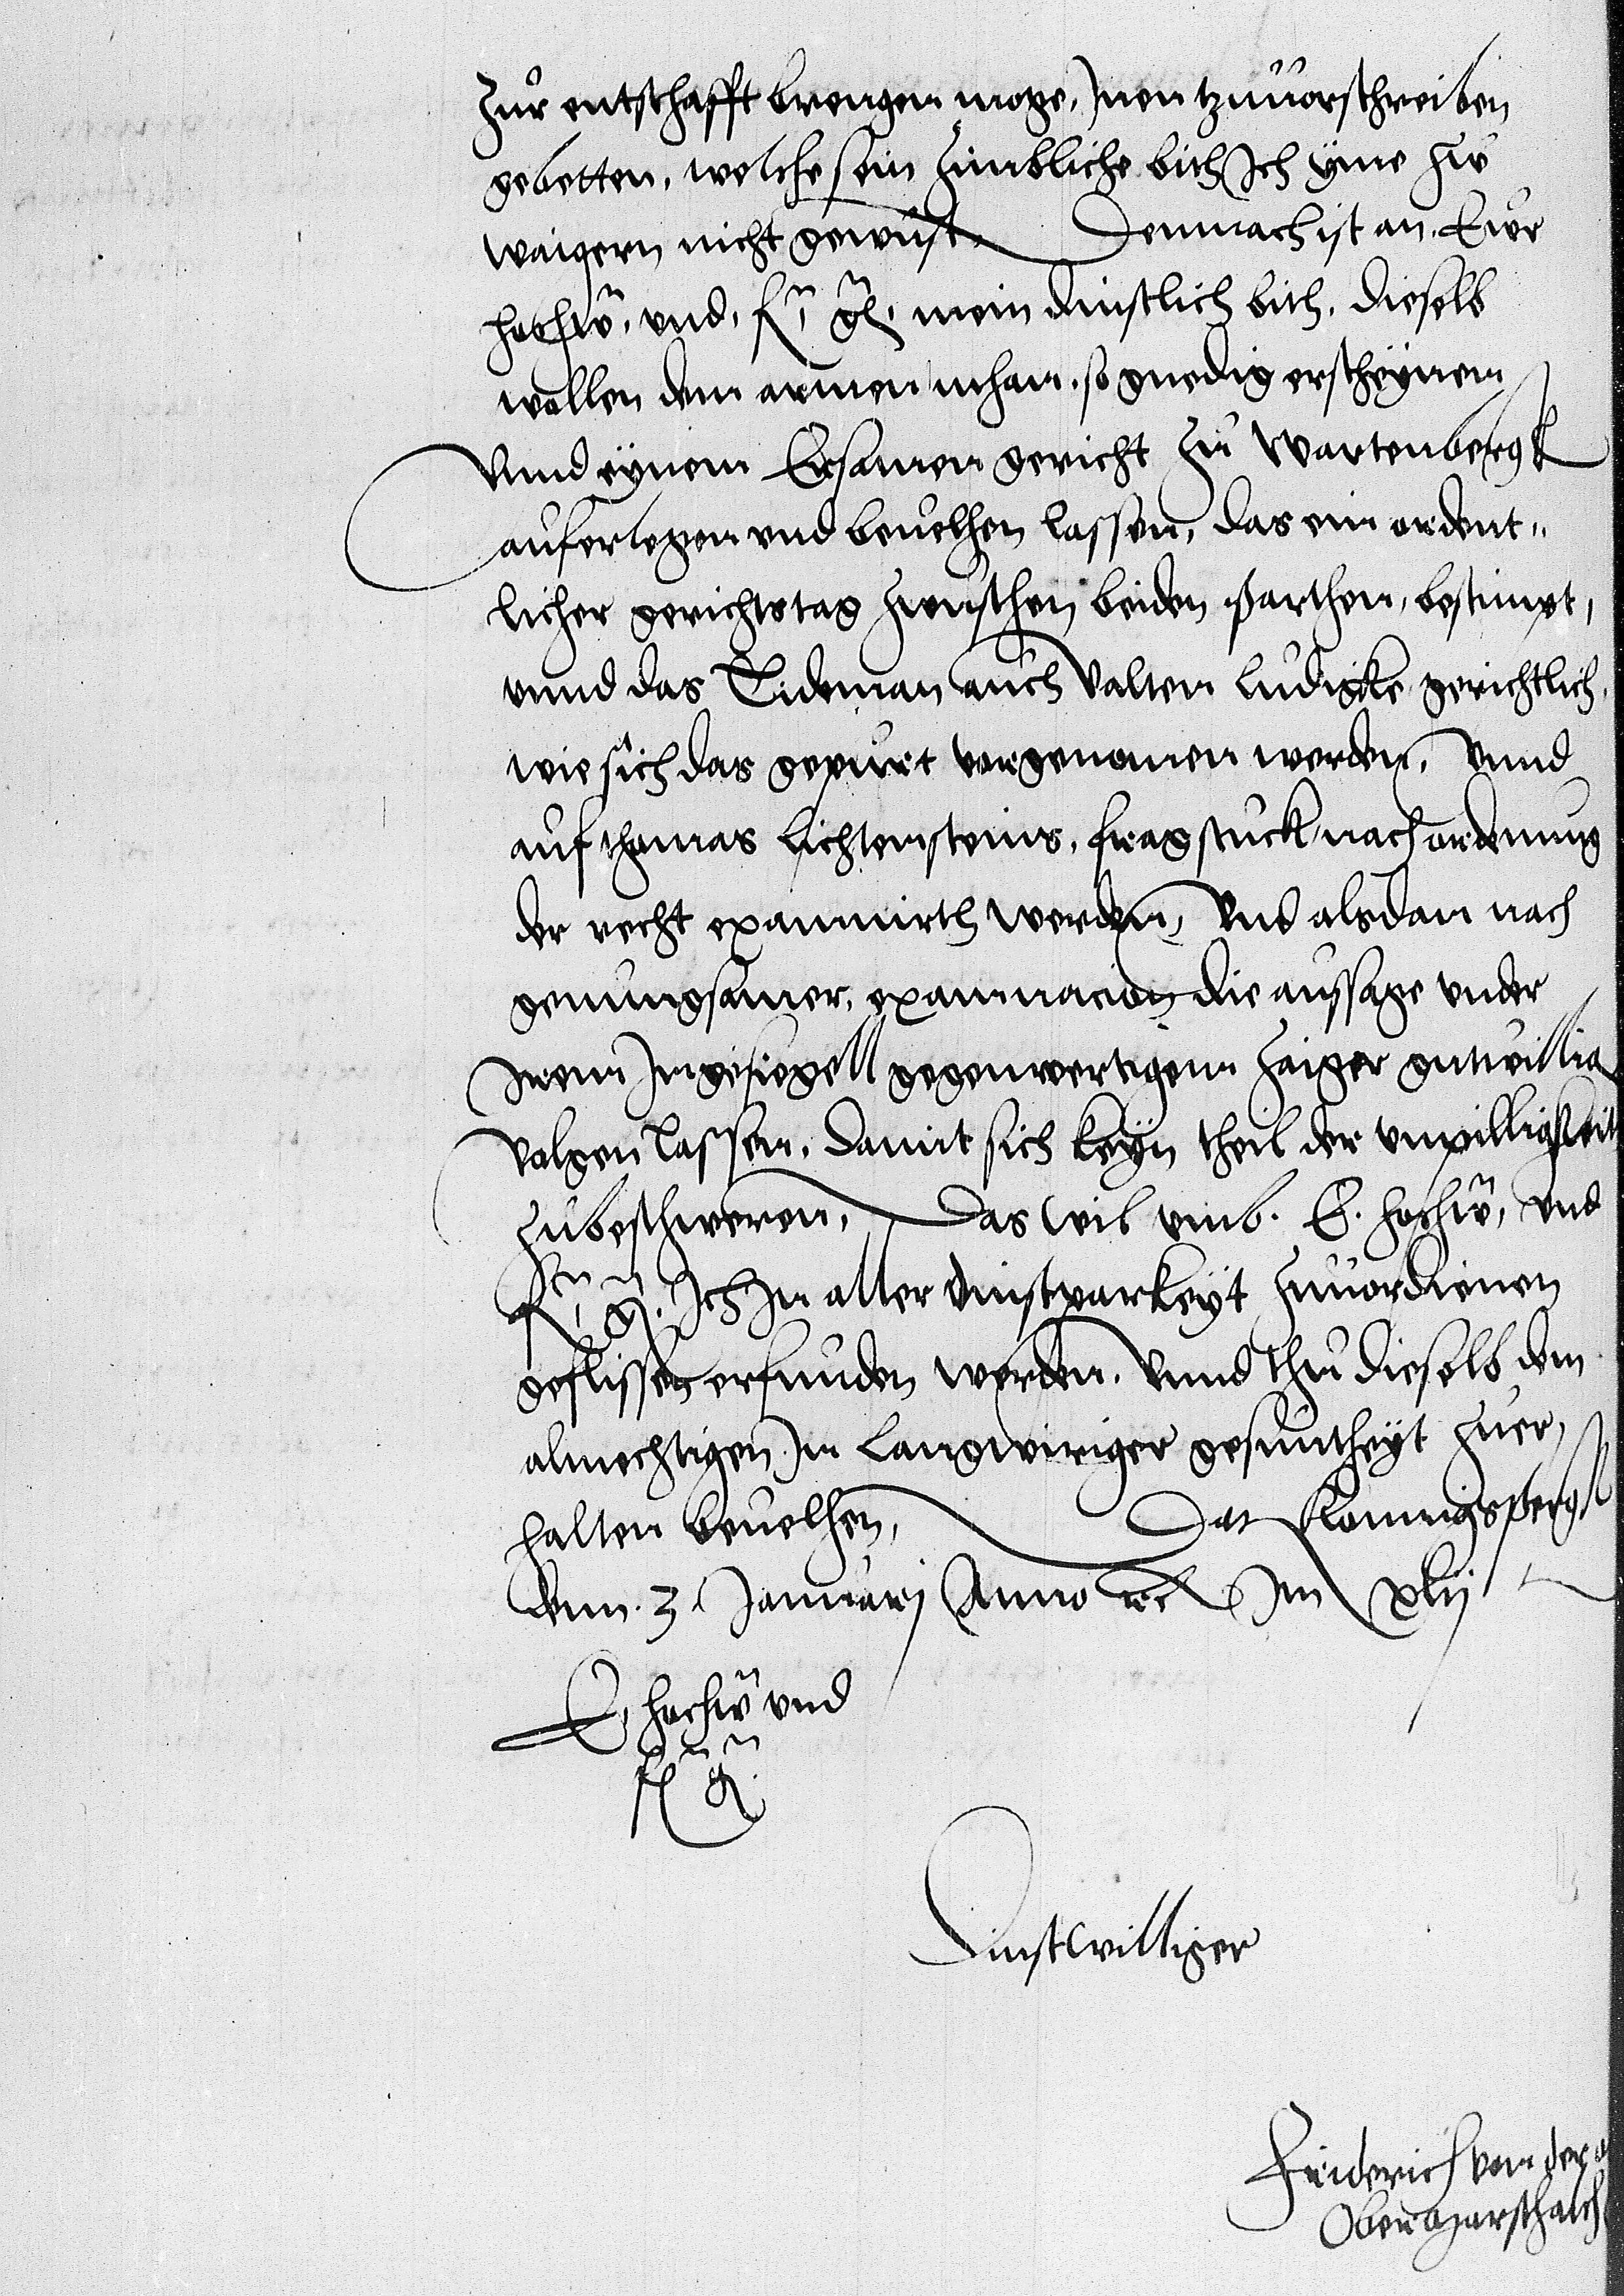 zur entschafft brengen moge, Inen tzuuorschreiben
gebetten, welche sein zimbliche bith Ich yme zw
waigern nicht gewust, Demnach ist an. Ewr
hochw, vnd, f g, mein dinstlich bith, dieselb
wollen dem armen mhan, so gnedig erscheynen
Vnnd eynem Ersamen gericht zu Wartenbergk
auferlegen vnd beuelhen lassen, das ein ordent„
licher gerichtstag zwuschen beiden parthen, bestimpt,
vnnd das Tideman auch Valten Ludigke gerichtlich,
wie sich das gepurt vorgenomen werden, Vnnd
auf thomas Lichtensteins, fragstuck, nach ordenung
der recht examinirth werden, Vnd alsdan nach
genungsamer, examinacion die aussage vnder
Irem Ingesiegell gegenwertigem zaiger gutwillig
volgen lassen, damit sich keyn theil der vnpilligkeit
zubeschweren, Das wil vmb. E. hochw, vnd
f, g. Ich In aller dinstparkeyt zuuordienen
geflissen erfunden werden. Vnnd thu dieselb dem
almechtigen In langwiriger gesuntheyt zuer,
halten beuelhen, Dat Konnigspergk
denn. 3. Januarij Anno etc Im xlij
E, hochw vnd
f g.
Dinstwilliger
Friderich von der
Obermarschalch